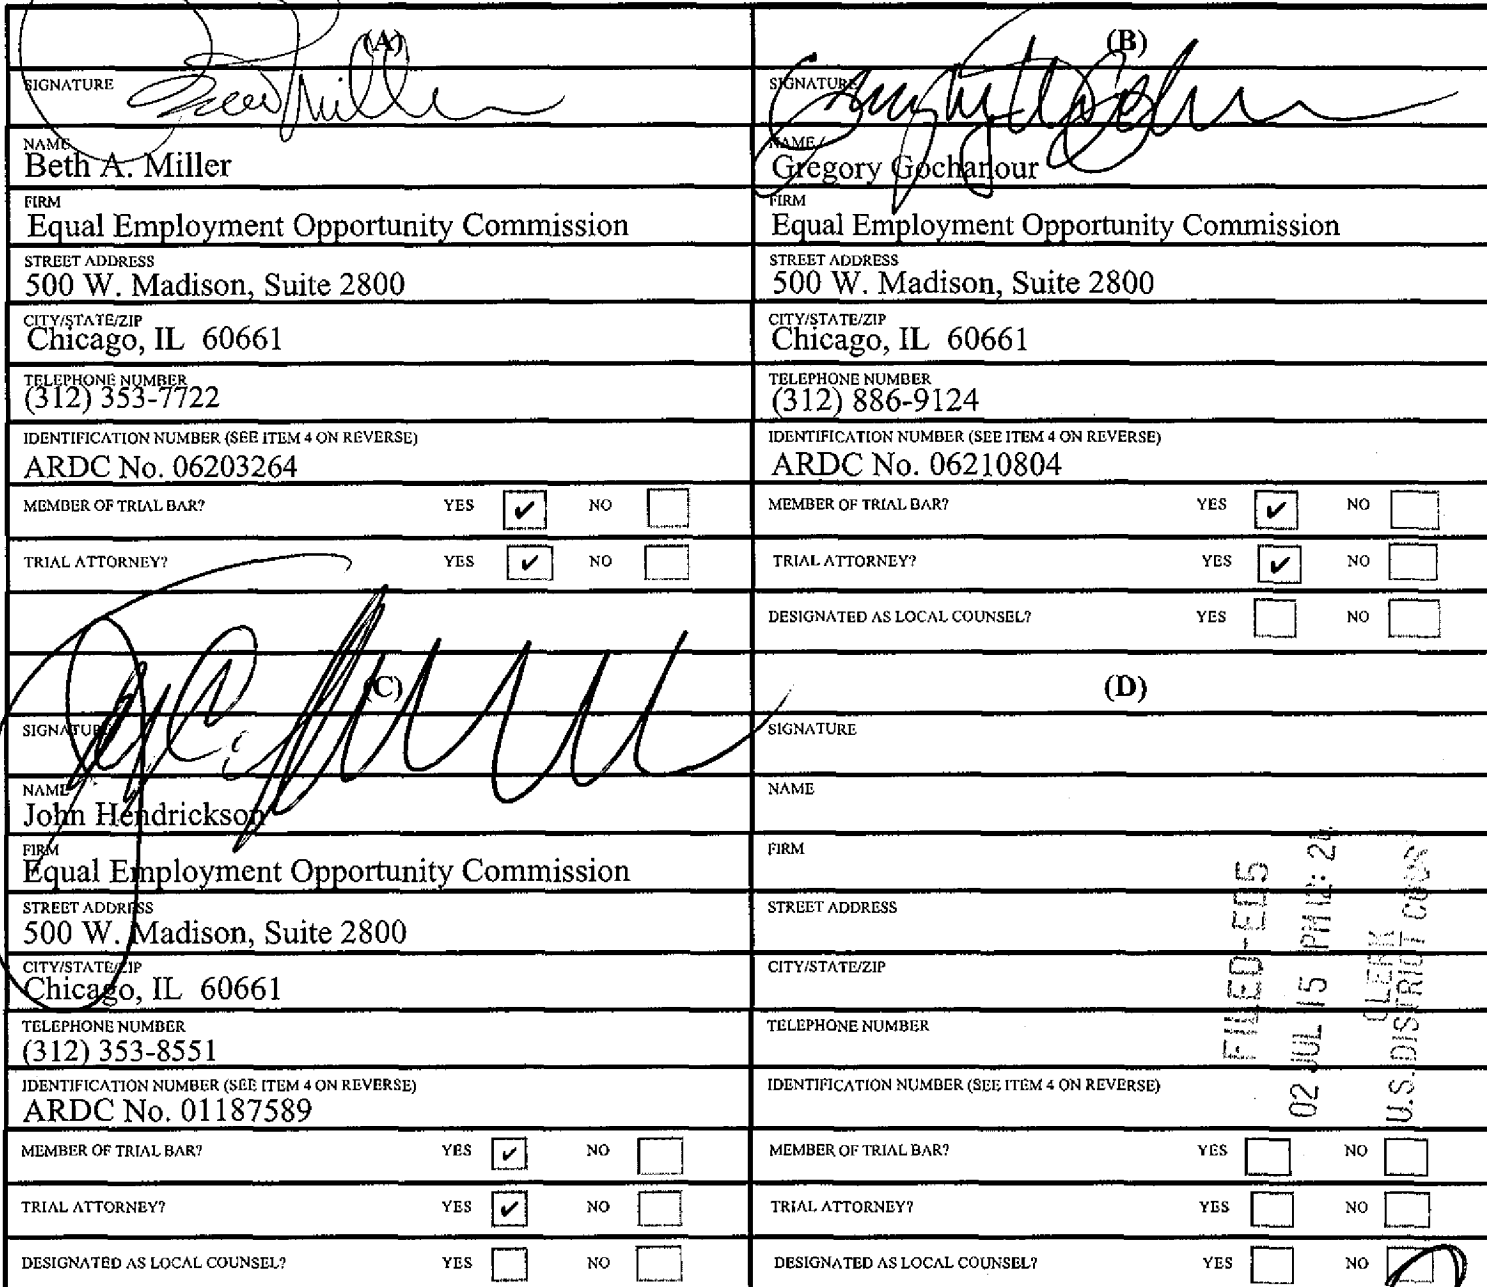 (A)
SIGNATURE
NAME
Beth A. Miller
FIRM
Equal Employment Opportunity Commission
STREET ADDRESS
500 W. Madison, Suite 2800
CITY/STATE/ZIP
Chicago, IL 60661
TELEPHONE NUMBER
(312) 353-7722
IDENTIFICATION NUMBER (SEE ITEM 4 ON REVERSE)
ARDC No. 06203264
MEMBER OF TRIAL BAR? YES ✔ NO
TRIAL ATTORNEY? YES ✔ NO
(B)
SIGNATURE
NAME
Gregory Gochanour
FIRM
Equal Employment Opportunity Commission
STREET ADDRESS
500 W. Madison, Suite 2800
CITY/STATE/ZIP
Chicago, IL 60661
TELEPHONE NUMBER
(312) 886-9124
IDENTIFICATION NUMBER (SEE ITEM 4 ON REVERSE)
ARDC No. 06210804
MEMBER OF TRIAL BAR? YES ✔ NO
TRIAL ATTORNEY? YES ✔ NO
DESIGNATED AS LOCAL COUNSEL? YES NO
(C)
SIGNATURE
NAME
John Hendrickson
FIRM
Equal Employment Opportunity Commission
STREET ADDRESS
500 W. Madison, Suite 2800
CITY/STATE/ZIP
Chicago, IL 60661
TELEPHONE NUMBER
(312) 353-8551
IDENTIFICATION NUMBER (SEE ITEM 4 ON REVERSE)
ARDC No. 01187589
MEMBER OF TRIAL BAR? YES ✔ NO
TRIAL ATTORNEY? YES ✔ NO
DESIGNATED AS LOCAL COUNSEL? YES NO
(D)
SIGNATURE
NAME
FIRM
STREET ADDRESS
CITY/STATE/ZIP
TELEPHONE NUMBER
IDENTIFICATION NUMBER (SEE ITEM 4 ON REVERSE)
MEMBER OF TRIAL BAR? YES NO
TRIAL ATTORNEY? YES NO
DESIGNATED AS LOCAL COUNSEL? YES NO
FILED-ED5
02 JUL 15 PM 12: 24
CLERK
U.S. DISTRICT COURT